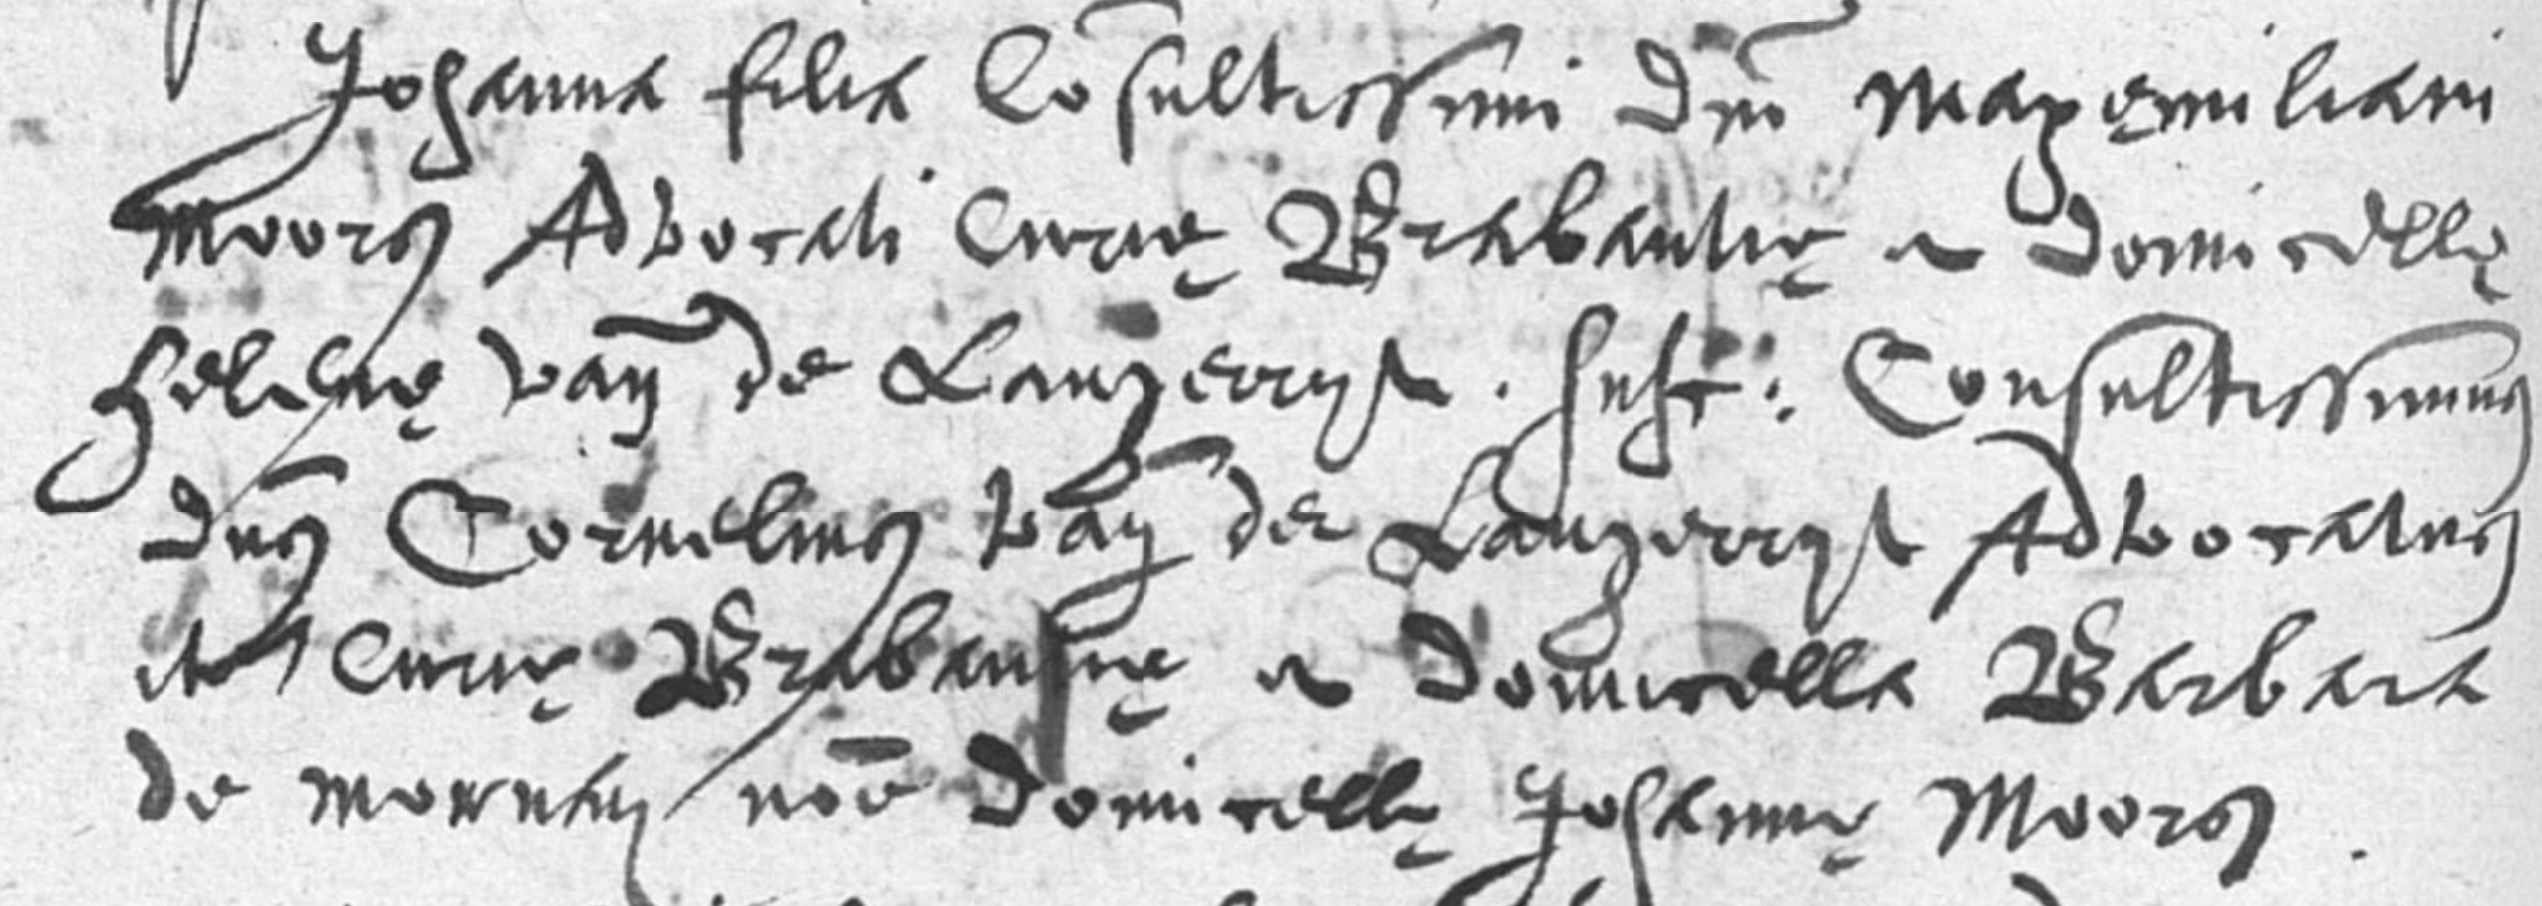 Johanna filia Cōsultissimi Dn̄i Maxęmiliani
Moors Advocati Curię Brabantię et Domicellę
Helenę van de Lanzerryst . susc: Consultissimus
Dn̄s Cornelius van der Lanzerryst Advocatus
itē Curię Brabantię et Domicella Barbara
de nōe Domicellę Johannę Moors .